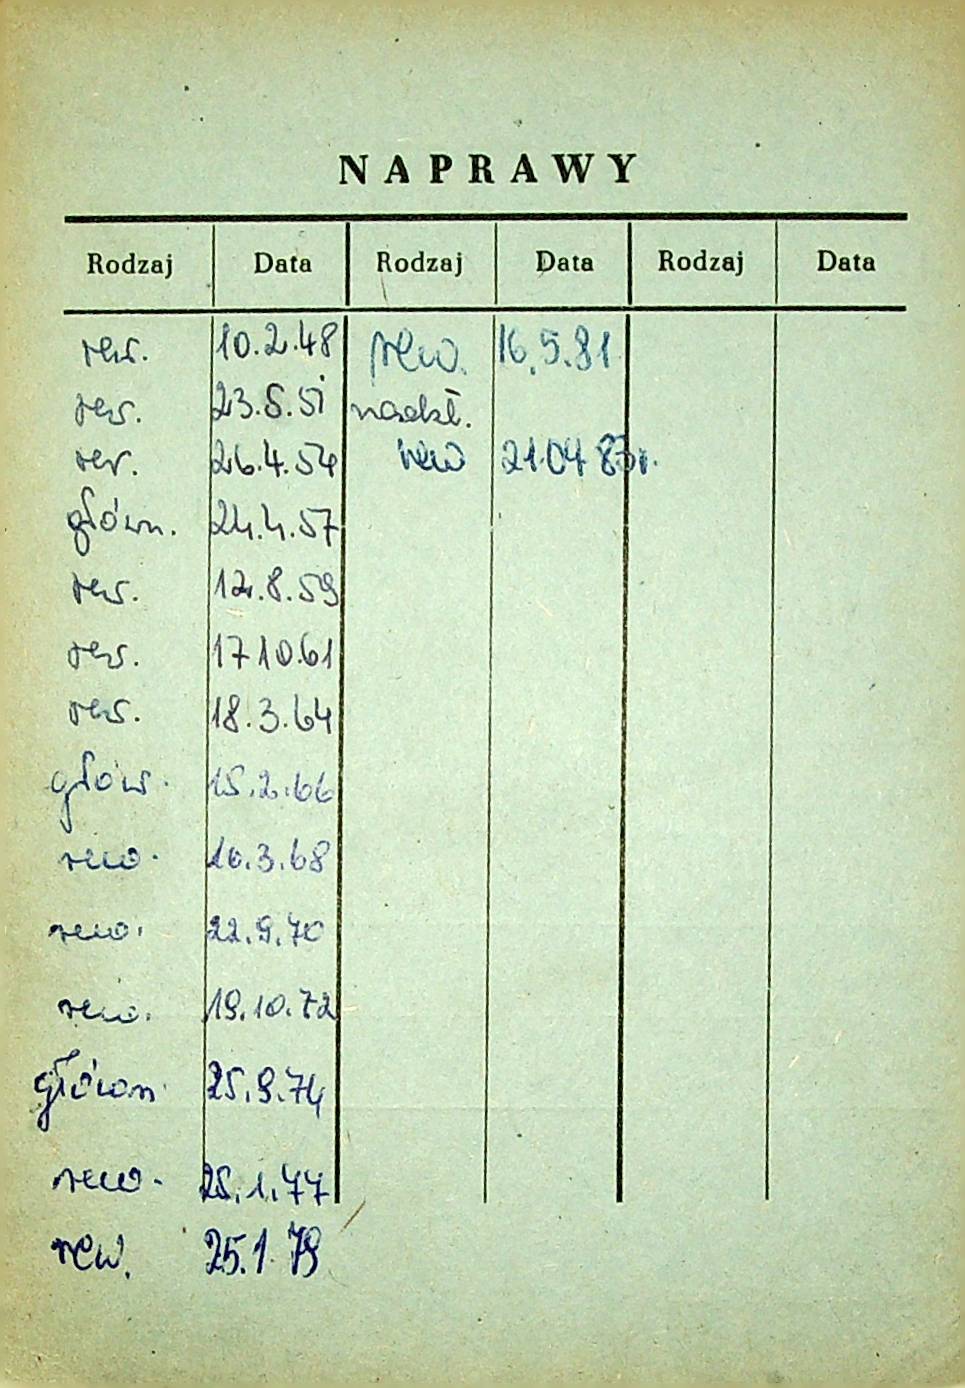 NAPRAWY
Rodzaj Data Rodzaj Data Rodzaj Data
rew. 10.2.48 rew. 16.5.81
rew. 23.5.51 nadkł.
rew. 26.4.54 rew 21.04 83r.
główn. 24.4.57
rew. 12.8.59
rew. 17.10.61
rew. 18.3.64
głów. 15.2.66
rew. 16.3.68
rew. 22.9.70
rew. 19.10.72
główn. 25.9.74
rew. 25.1.77
rew. 25.1.79